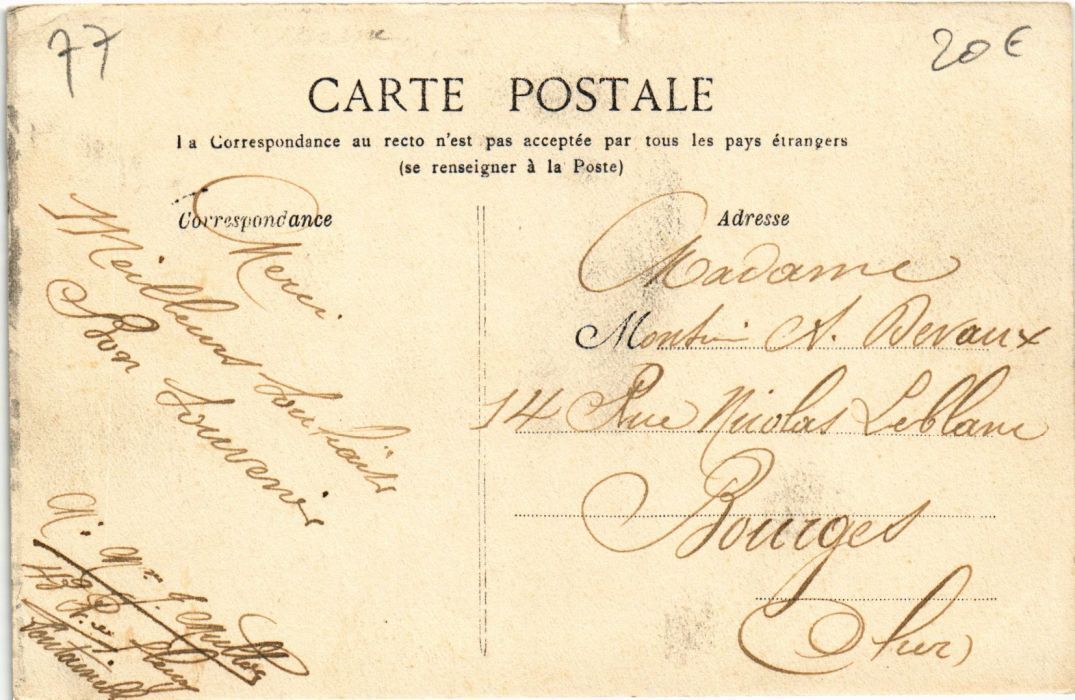 77
20€
CARTE POSTALE
La Correspondance au recto n'est pas acceptée par tous les pays étrangers
(se renseigner à la Poste)
Correspondance
Merci
Meilleurs Souhaits
Bon Souvenir
48 Rue
Adresse
Madame
A. Devaux
14 Rue Nicolas Leblanc
Bourges
Cher